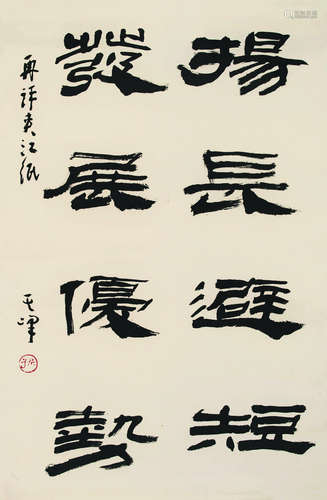 揚長避短
發展優勢
再評夾江紙
其峰